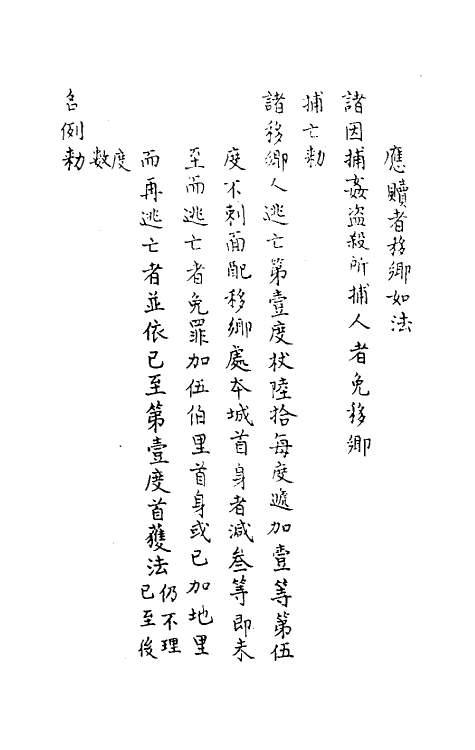 應贖者移鄉如法
諸因捕姦盜殺所捕人者免移鄉
捕亡勑
諸移鄉人逃亡第壹度杖陸拾每度遞加壹等第伍
度不刺面配移鄉處本城首身者減叁等即未
至而逃亡者免罪加伍伯里首身或已加地里
而再逃亡者並依已至第壹度首獲法仍不理已至後
度數
名例勑